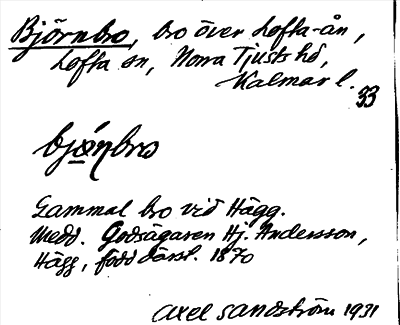 Björnbro, bro över Lofta-ån,
Lofta sn, Norra Tjusts hd,
Kalmar l.
33
bjö́ṇbro
Gammal bro vid Hägg.
Medd. Godsägaren Hj. Andersson,
Hägg, född därst. 1870
Axel Sandström 1931